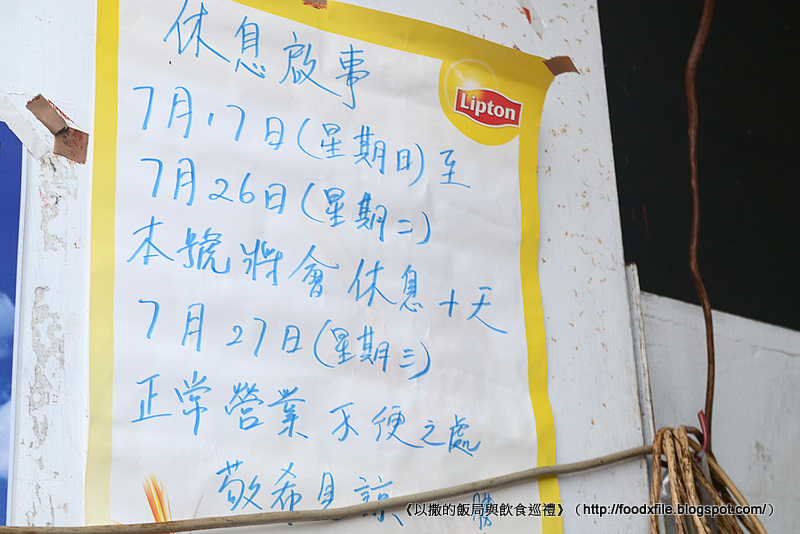 休息啟事
Lipton
7月17日(星期日)至
7月26日(星期二)
本號將會休息十天
7月27日(星期三)
正常營業 不便之處
敬希見諒
《以撒的飯局與飲食巡禮》（http://foodxfile.blogspot.com/）